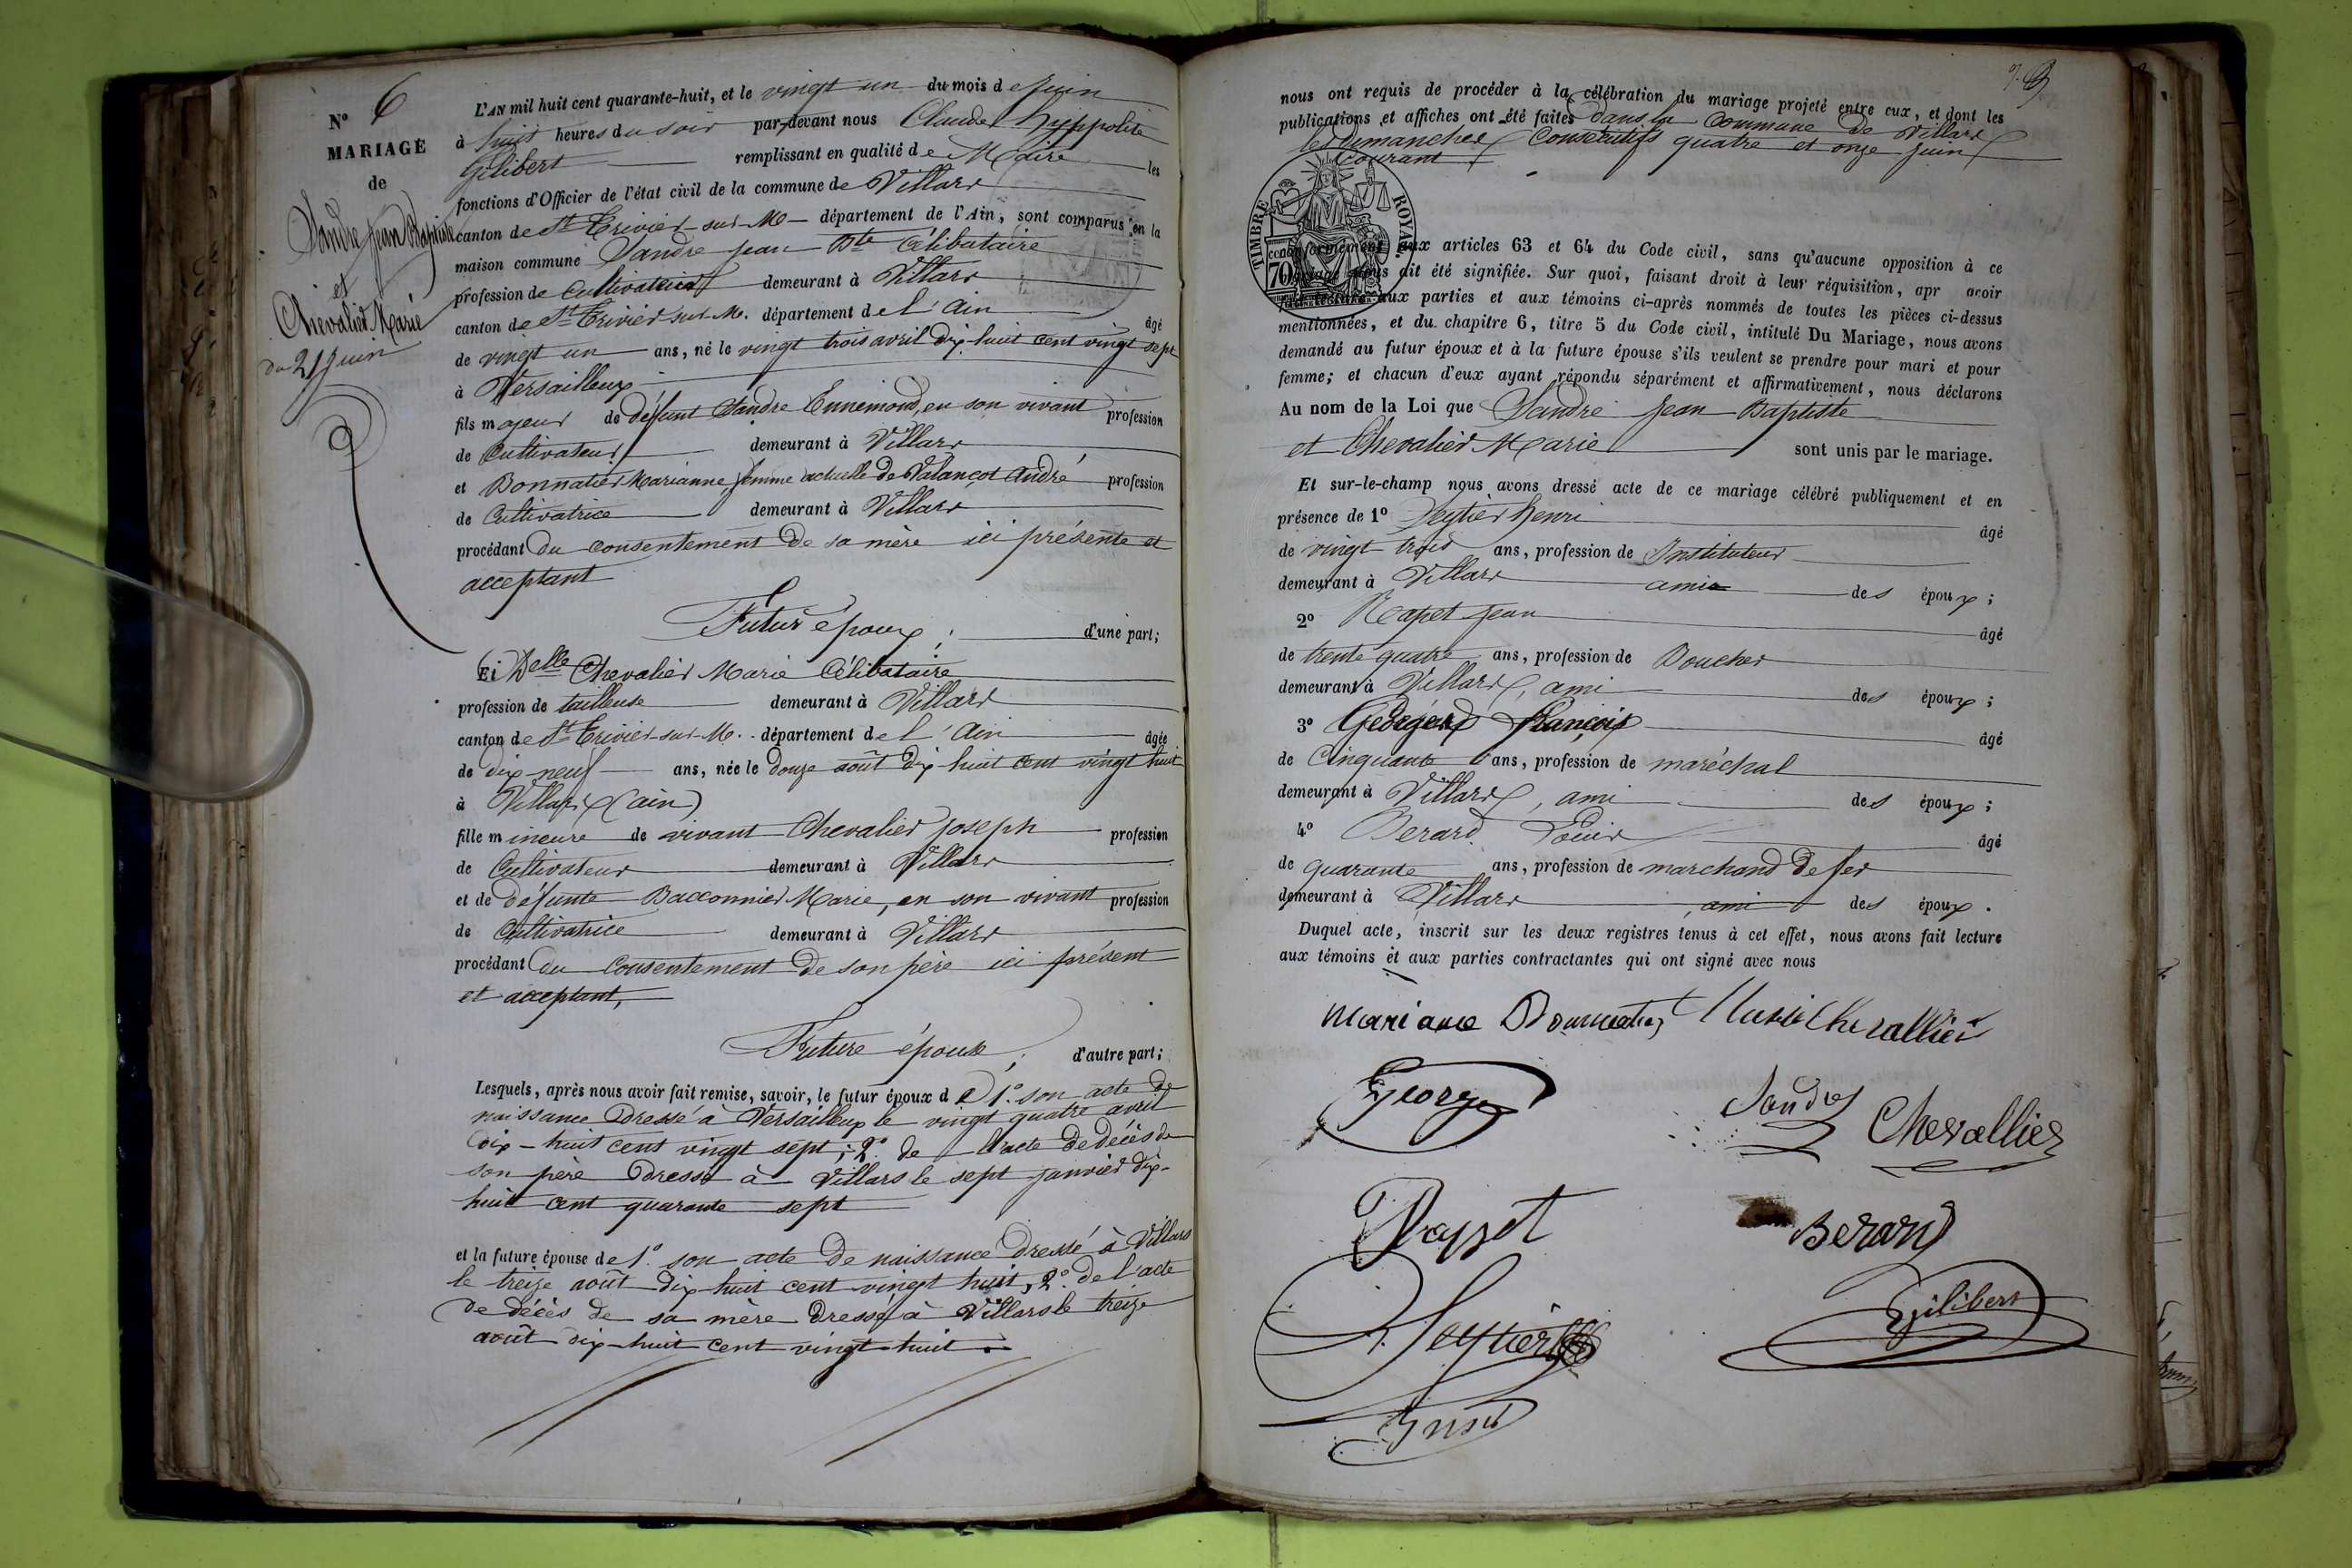 N° 6
MARIAGE
de
Sandre Jean Baptiste
et
Chevalier Marie
du 21 Juin
L'AN mil huit cent quarante-huit, et le vingt un du mois de Juin
à huit heures du soir par-devant nous Claude hyppolite
Gilibert remplissant en qualité de Maire les
fonctions d'Officier de l'état civil de la commune de Villars
canton de St Trivier-sur-M- département de l'Ain, sont comparus en la
maison commune Sandre jean Bte Célibataire
profession de Cultivateur demeurant à Villars
canton de St Trivier sur M. département de l'Ain âgé
de vingt un ans, né le vingt trois avril dix huit cent vingt sept
à Versailleux
fils majeur de défunt Sandre Ennemond, en son vivant profession
de Cultivateur demeurant à Villars
et Bonnatier Marianne femme actuelle de Valançot André profession
de Cultivatrice demeurant à Villars
procédant du consentement de sa mère ici présente et
acceptant
Futur époux; d'une part;
Et Delle Chevalier Marie Célibataire
profession de tailleuse demeurant à Villars
canton de St Trivier-sur-M. département de l'Ain âgée
de dix neuf ans, née le douze août dix huit cent vingt huit
à Villars (ain)
fille mineure de vivant Chevalier Joseph profession
de Cultivateur demeurant à Villars
et de défunte Bacconnier Marie, en son vivant profession
de Cultivatrice demeurant à Villars
procédant du consentement de son père ici présent
et acceptant,
Future épouse; d'autre part;
Lesquels, après nous avoir fait remise, savoir, le futur époux de 1° son acte de
naissance dressé à Versailleux le vingt quatre avril
dix-huit cent vingt sept; 2° de l'acte de décès de
son père dressé à Villars le sept janvier dix-
huit cent quarante sept
et la future épouse de 1° son acte de naissance dressé à Villars
le treize août dix huit cent vingt huit, 2° de l'acte
de décès de sa mère dressé à Villars le treize
août dix-huit cent vingt-huit.
nous ont requis de procéder à la célébration du mariage projeté entre eux, et dont les
publications et affiches ont été faites dans la Commune de Villars
les dimanches consécutifs quatre et onze juin
courant
TIMBRE ROYAL
70
conformément aux articles 63 et 64 du Code civil, sans qu'aucune opposition à ce
mariage nous ait été signifiée. Sur quoi, faisant droit à leur réquisition, apr avoir
fait lecture aux parties et aux témoins ci-après nommés de toutes les pièces ci-dessus
mentionnées, et du chapitre 6, titre 5 du Code civil, intitulé Du Mariage, nous avons
demandé au futur époux et à la future épouse s'ils veulent se prendre pour mari et pour
femme; et chacun d'eux ayant répondu séparément et affirmativement, nous déclarons
Au nom de la Loi que Sandre Jean Baptiste
et Chevalier Marie sont unis par le mariage.
Et sur-le-champ nous avons dressé acte de ce mariage célébré publiquement et en
présence de 1° henri âgé
de vingt trois ans, profession de Instituteur
demeurant à Villars ami des époux;
2° Rapet Jean âgé
de trente quatre ans, profession de Boucher
demeurant à Villars, ami des époux;
3° François âgé
de Cinquante ans, profession de maréchal
demeurant à Villars, ami des époux;
4° Berard Louis âgé
de quarante ans, profession de marchand de fer
demeurant à Villars, ami des époux.
Duquel acte, inscrit sur les deux registres tenus à cet effet, nous avons fait lecture
aux témoins et aux parties contractantes qui ont signé avec nous
Mariane Marie Chevallier
George
Sandre Chevallier
Rappet
Berard
Gilibert